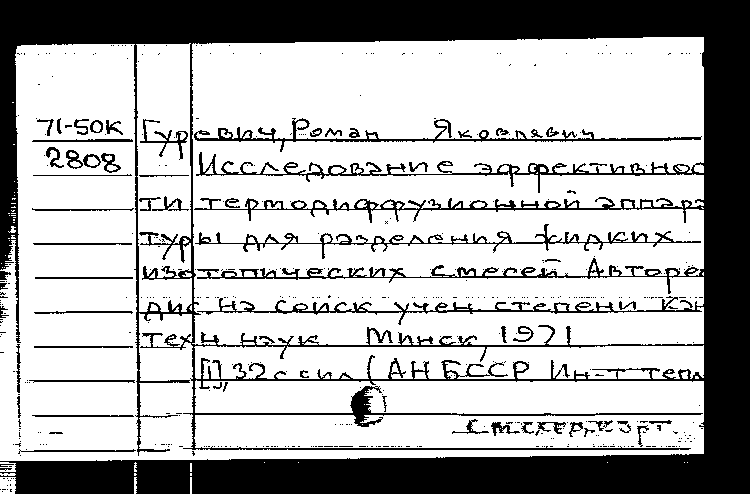 71-50К Гуревич, Роман Яковлевич
2808 Исследование эффективнос
ти термодиффузионной аппара
туры для разделения жидких
изотопических смесей. Авторе
дис. на соиск учен степени кан
техн. наук. Минск, 1971
[1], 32с с ил (АН БССР Ин-т тепл
См.след.карт.